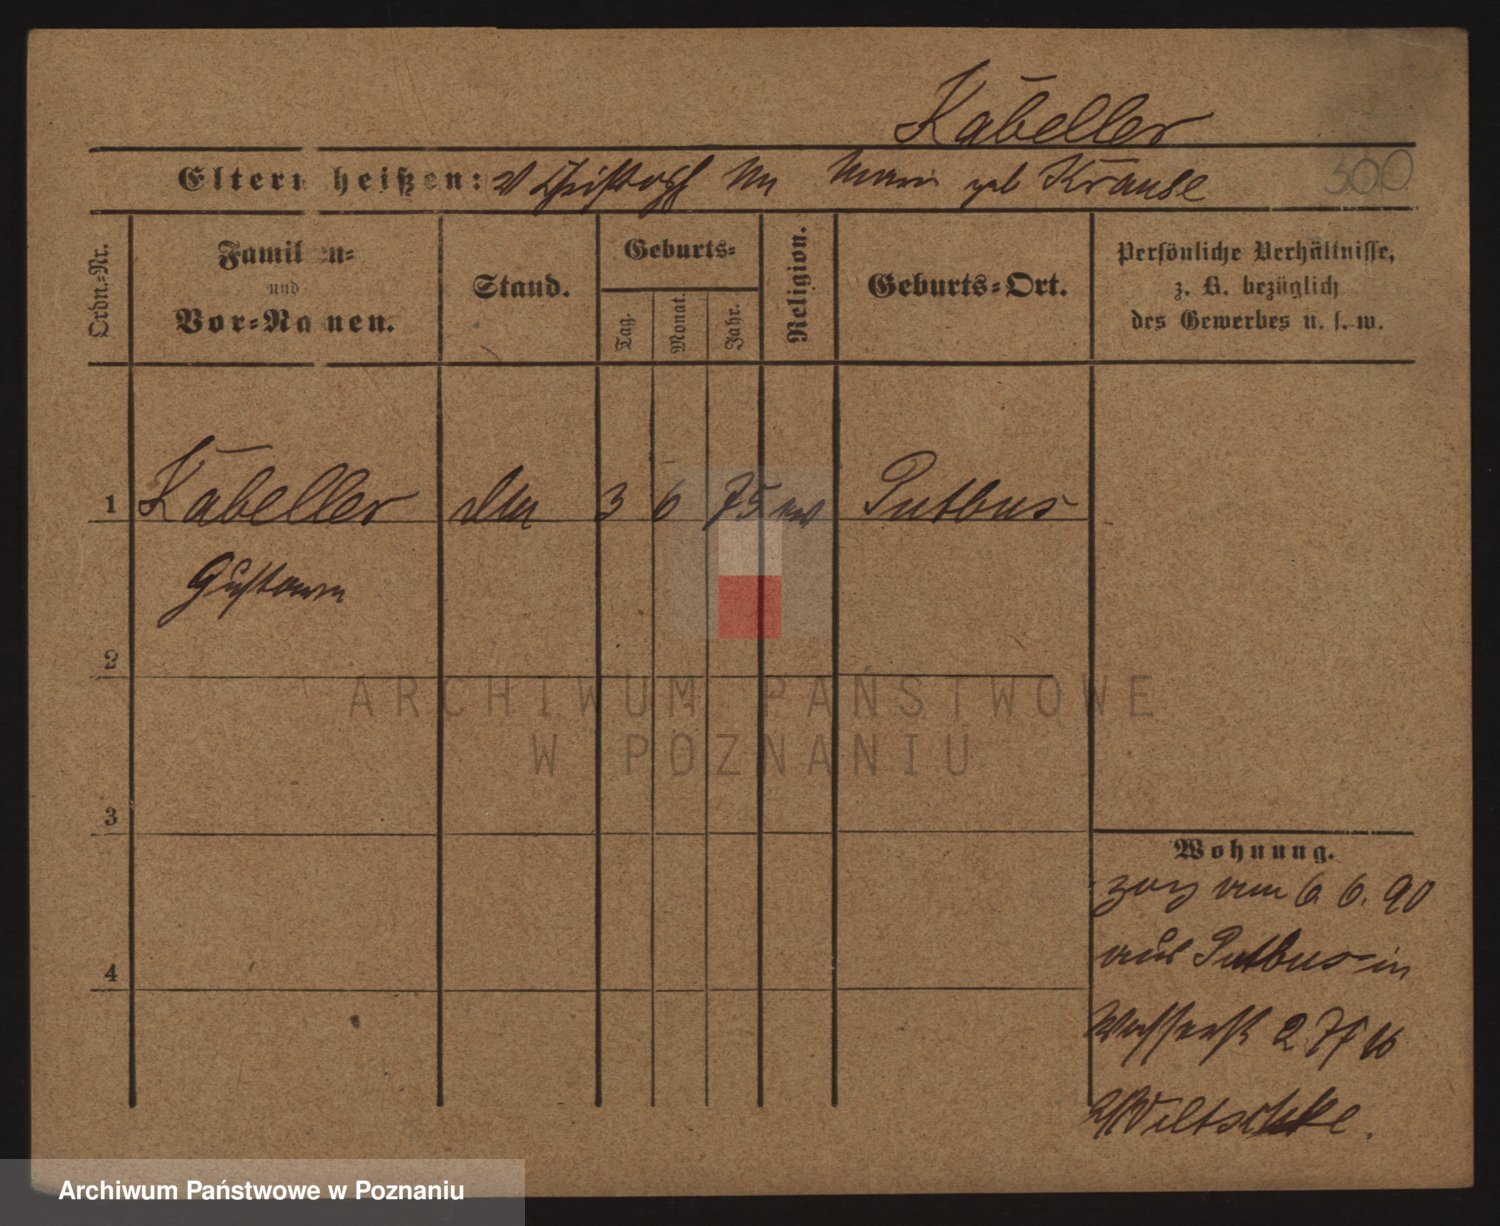 Kabeller
300
Eltern heißen: V Christoph M Marie geb Krause
Ordn.-Nr.
Familien-
und
Vor-Namen.
Stand.
Geburts-
Tag.
Monat.
Jahr.
Religion.
Geburts-Ort.
Persönliche Verhältnisse,
z. B. bezüglich
des Gewerbes u. s. w.
1 Kabeller 3 6 75 ev Putbus
Gustav
2
ARCHIWUM PAŃSTWOWE
W POZNANIU
3
Wohnung.
zog am 6. 6. 90
aus Putbus in
Wasserstr 2 7f b
Wiltschke.
4
Archiwum Państwowe w Poznaniu